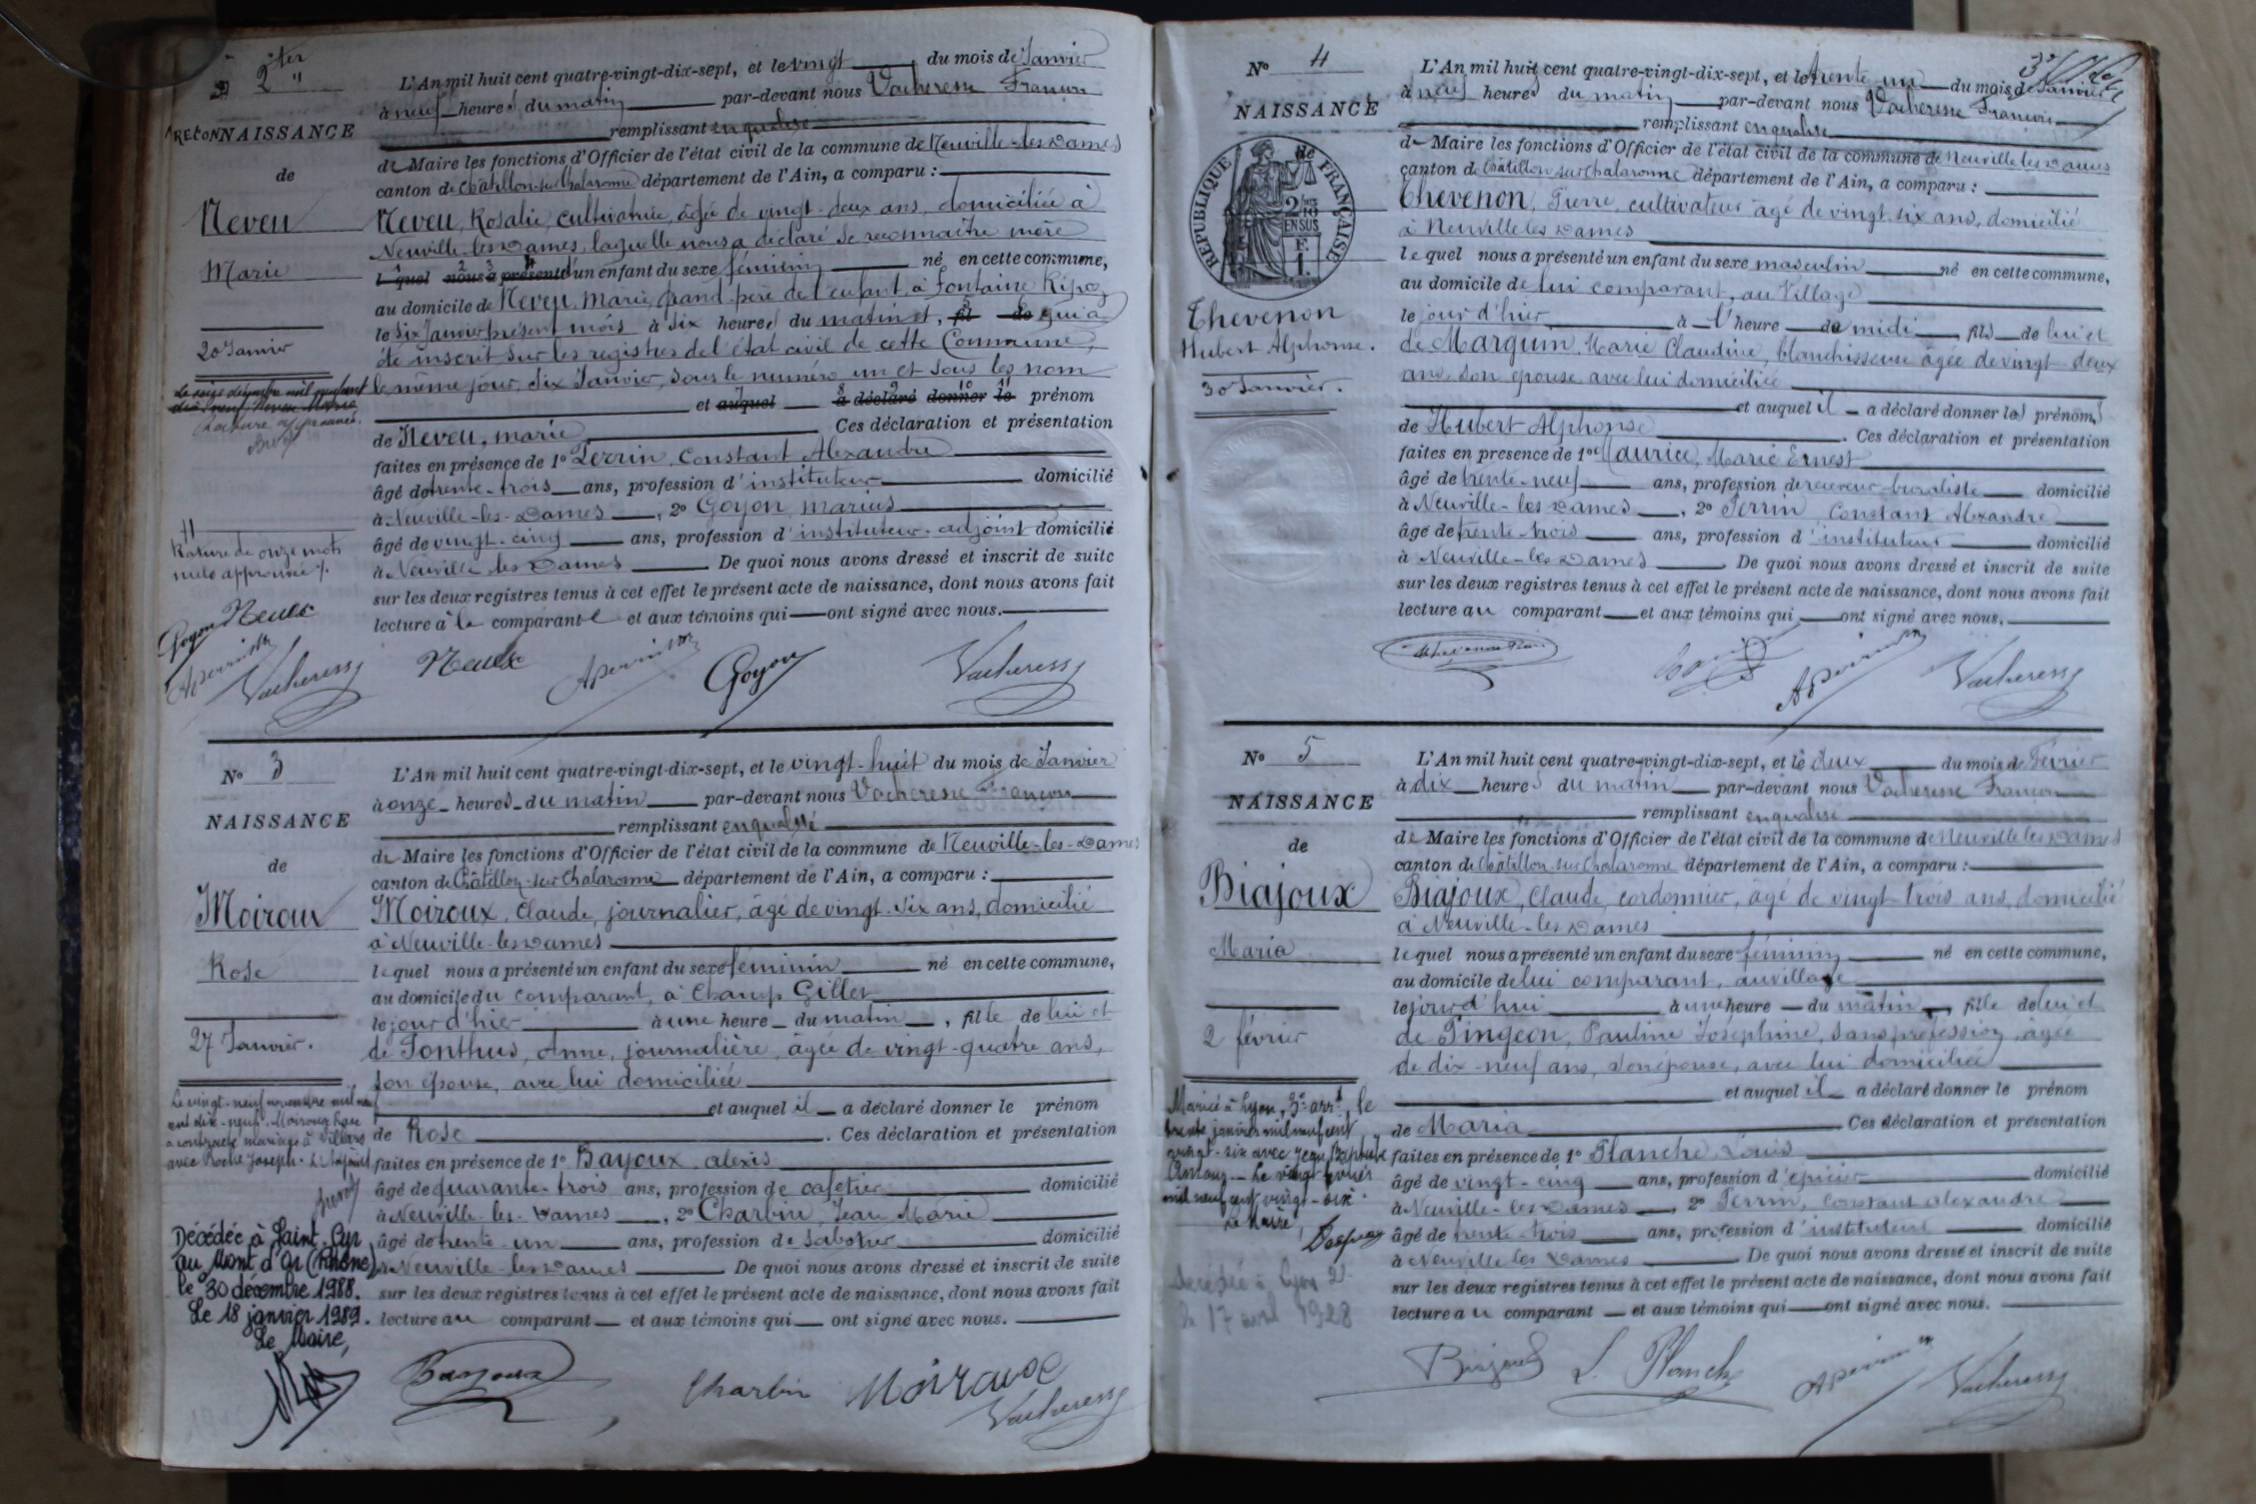 2 ter
"
RECONNAISSANCE
de
Neveu
Marie
20 Janvier
Rature de onze mots
nuls approuvée /.
Neveu
Goyon
APerrin
Vacheresse
L'An mil huit cent quatre-vingt-dix-sept, et le vingt du mois de Janvier
à neuf heures du matin par-devant nous Vacheresse François
remplissant en qualité
de Maire les fonctions d'Officier de l'état civil de la commune de Neuville-les-Dames
canton de Châtillon-sur-Chalaronne département de l'Ain, a comparu :
Neveu, Rosalie, cultivatrice, âgée de vingt-deux ans, domiciliée à
Neuville-les-Dames, laquelle nous a déclaré se reconnaître mère
lequel nous a présenté d'un enfant du sexe féminin né en cette commune,
au domicile de Neveu, Marie, grand-père de l'enfant, à Fontaine Ripoz
le six Janvier présent mois à six heures du matin et, fil de qui a
été inscrit sur les registres de l'état civil de cette Commune,
le même jour, six Janvier, sous le numéro un et sous les nom
et auquel a déclaré donner le prénom
de Neveu, marie Ces déclaration et présentation
faites en présence de 1º Perrin, Constant Alexandre
âgé de trente-trois ans, profession d'instituteur domicilié
à Neuville-les-Dames, 2º Goyon, marius
âgé de vingt-cinq ans, profession d'instituteur-adjoint domicilié
à Neuville les Dames De quoi nous avons dressé et inscrit de suite
sur les deux registres tenus à cet effet le présent acte de naissance, dont nous avons fait
lecture à la comparante et aux témoins qui ont signé avec nous.
Neveu APerrin Goyon Vacheresse
Nº 3
NAISSANCE
de
Moiroux
Rose
27 Janvier.
Le vingt-neuf novembre mil neuf
cent dix-neuf, Moiroux Rose
a contracté mariage à Villars
avec Roche Joseph.
Décédée à Saint-Cyr
au Mont d'Or (Rhône)
le 30 décembre 1988.
Le 18 janvier 1989.
Le Maire,
L'An mil huit cent quatre-vingt-dix-sept, et le vingt-huit du mois de Janvier
à onze heures du matin par-devant nous Vacheresse François
remplissant en qualité
de Maire les fonctions d'Officier de l'état civil de la commune de Neuville-les-Dames
canton de Châtillon-sur-Chalaronne département de l'Ain, a comparu :
Moiroux, Claude, journalier, âgé de vingt-six ans, domicilié
à Neuville-les-Dames
lequel nous a présenté un enfant du sexe féminin né en cette commune,
au domicile du comparant, à Champ Gillet
le jour d'hier à une heure du matin, fille de lui et
de Ponthus, Anne, journalière, âgée de vingt-quatre ans,
son épouse, avec lui domiciliée
et auquel il a déclaré donner le prénom
de Rose. Ces déclaration et présentation
faites en présence de 1º Bajoux, alexis
âgé de quarante-trois ans, profession de cafetier domicilié
à Neuville-les-Dames, 2º Charbin, Jean Marie
âgé de trente-un ans, profession de sabotier domicilié
à Neuville-les-Dames De quoi nous avons dressé et inscrit de suite
sur les deux registres tenus à cet effet le présent acte de naissance, dont nous avons fait
lecture au comparant et aux témoins qui ont signé avec nous.
Charbin Moiroux
Vacheresse
Nº 4
NAISSANCE
de
RÉPUBLIQUE FRANÇAISE
2/10
EN SUS
F.
1.
Thevenon
Hubert Alphonse.
30 Janvier.
L'An mil huit cent quatre-vingt-dix-sept, et le trente-un du mois de Janvier
à neuf heures du matin par-devant nous Vacheresse François
remplissant en qualité
de Maire les fonctions d'Officier de l'état civil de la commune de Neuville les Dames
canton de Châtillon sur Chalaronne département de l'Ain, a comparu :
Thevenon, Pierre, cultivateur âgé de vingt-six ans, domicilié
à Neuville les Dames
lequel nous a présenté un enfant du sexe masculin né en cette commune,
au domicile de lui comparant, au Village
le jour d'hier à l'heure de midi, fils de lui et
de Marguin, Marie Claudine, blanchisseuse âgée de vingt-deux
ans, son épouse avec lui domiciliée
et auquel il a déclaré donner les prénoms
de Hubert Alphonse. Ces déclaration et présentation
faites en présence de 1º Laurice, Marie Ernest
âgé de trente-neuf ans, profession de receveur-buraliste domicilié
à Neuville-les-Dames, 2º Perrin Constant Alexandre
âgé de trente-trois ans, profession d'instituteur domicilié
à Neuville-les-Dames. De quoi nous avons dressé et inscrit de suite
sur les deux registres tenus à cet effet le présent acte de naissance, dont nous avons fait
lecture au comparant et aux témoins qui ont signé avec nous.
APerrin Vacheresse
Nº 5
NAISSANCE
de
Biajoux
Maria
2 février
Mariée à Lyon, 3e arrt, le
trente janvier mil neuf cent
vingt-six avec Jean Baptiste
Le vingt février
mil neuf cent vingt-six.
Le Maire,
Décédée à Lyon
le 17 avril 1928
L'An mil huit cent quatre-vingt-dix-sept, et le deux du mois de Février
à dix heures du matin par-devant nous Vacheresse François
remplissant en qualité
de Maire les fonctions d'Officier de l'état civil de la commune de Neuville les Dames
canton de Châtillon-sur-Chalaronne département de l'Ain, a comparu :
Biajoux, Claude, cordonnier, âgé de vingt-trois ans, domicilié
à Neuville-les Dames
lequel nous a présenté un enfant du sexe féminin né en cette commune,
au domicile de lui comparant, au village
le jour d'hui à une heure du matin, fille de lui et
de Pingeon, Pauline Joséphine, sans profession, âgée
de dix-neuf ans, son épouse, avec lui domiciliée
et auquel il a déclaré donner le prénom
de Maria Ces déclaration et présentation
faites en présence de 1º Planche Louis
âgé de vingt-cinq ans, profession d'épicier domicilié
à Neuville-les-Dames, 2º Perrin, Constant alexandre
âgé de trente-trois ans, profession d'instituteur domicilié
à Neuville les Dames De quoi nous avons dressé et inscrit de suite
sur les deux registres tenus à cet effet le présent acte de naissance, dont nous avons fait
lecture au comparant et aux témoins qui ont signé avec nous.
Biajoux L. Planche APerrin Vacheresse